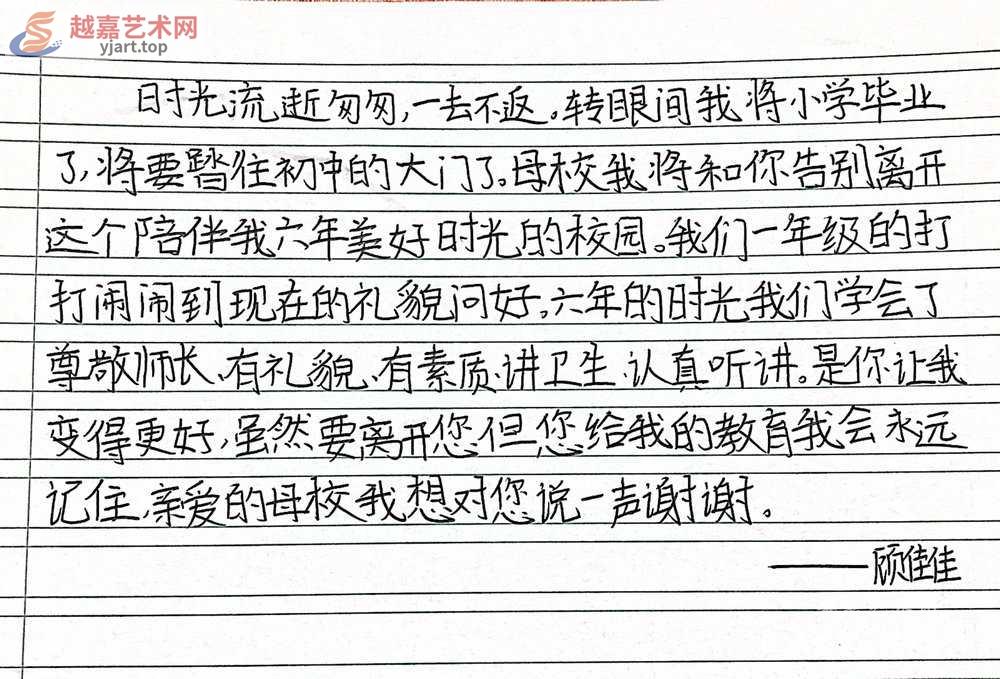 越嘉艺术网
yjart.top
时光流逝匆匆,一去不返。转眼间我将小学毕业
了,将要踏住初中的大门了。母校我将和你告别离开
这个陪伴我六年美好时光的校园。我们一年级的打
打闹闹到现在的礼貌问好,六年的时光我们学会了
尊敬师长、有礼貌、有素质、讲卫生、认真听讲。是你让我
变得更好,虽然要离开您但您给我的教育我会永远
记住,亲爱的母校我想对您说一声谢谢。
——顾佳佳